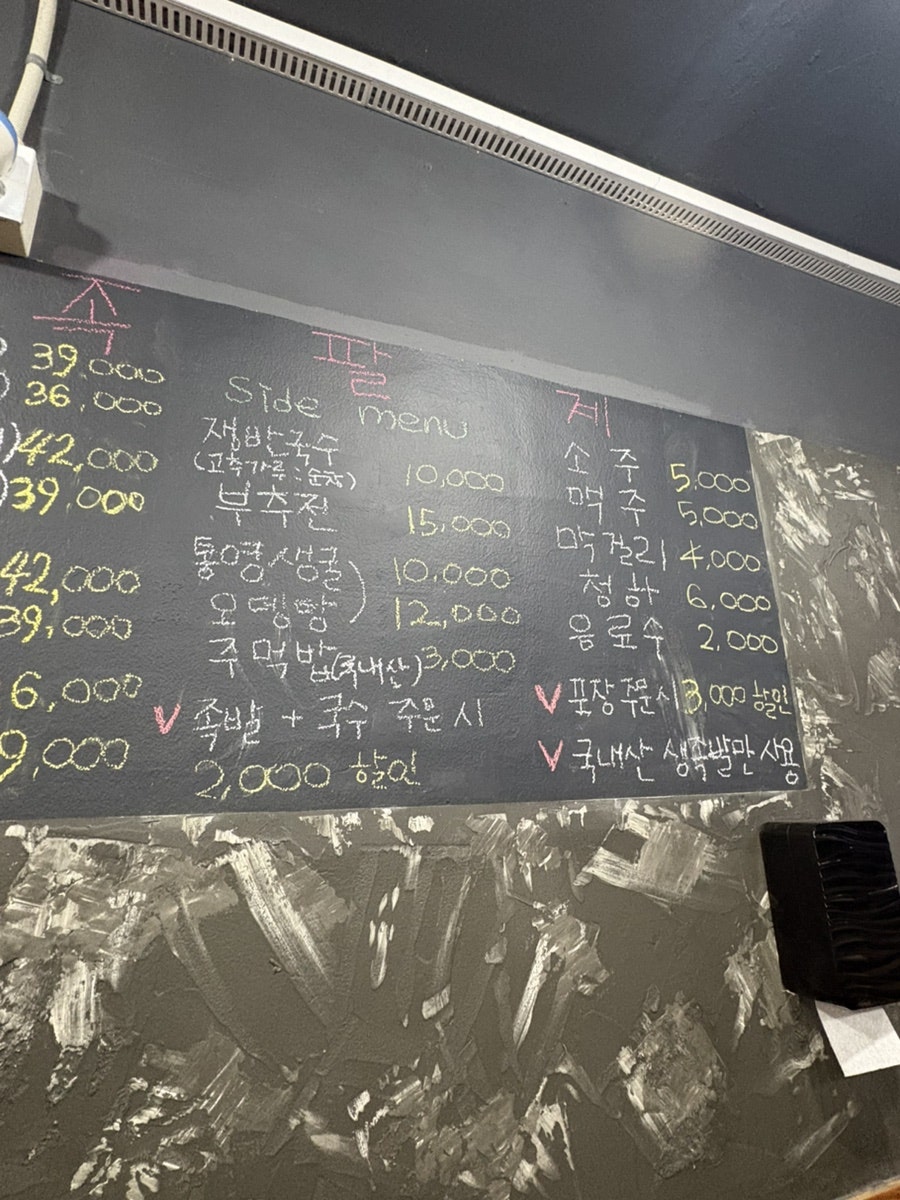 족 팔 계
39,000
36,000
42,000
39,000
42,000
39,000
6,000
9,000
Side menu
쟁반국수 10,000
(고춧가루:
부추전 15,000
통영생굴 10,000
오뎅탕 12,000
주먹밥(국내산) 3,000
V 족발 + 국수 주문 시
2,000 할인
소주 5,000
맥주 5,000
막걸리 4,000
청하 6,000
음료수 2,000
V 포장주문시 3,000 할인
V 국내산 생족발만 사용